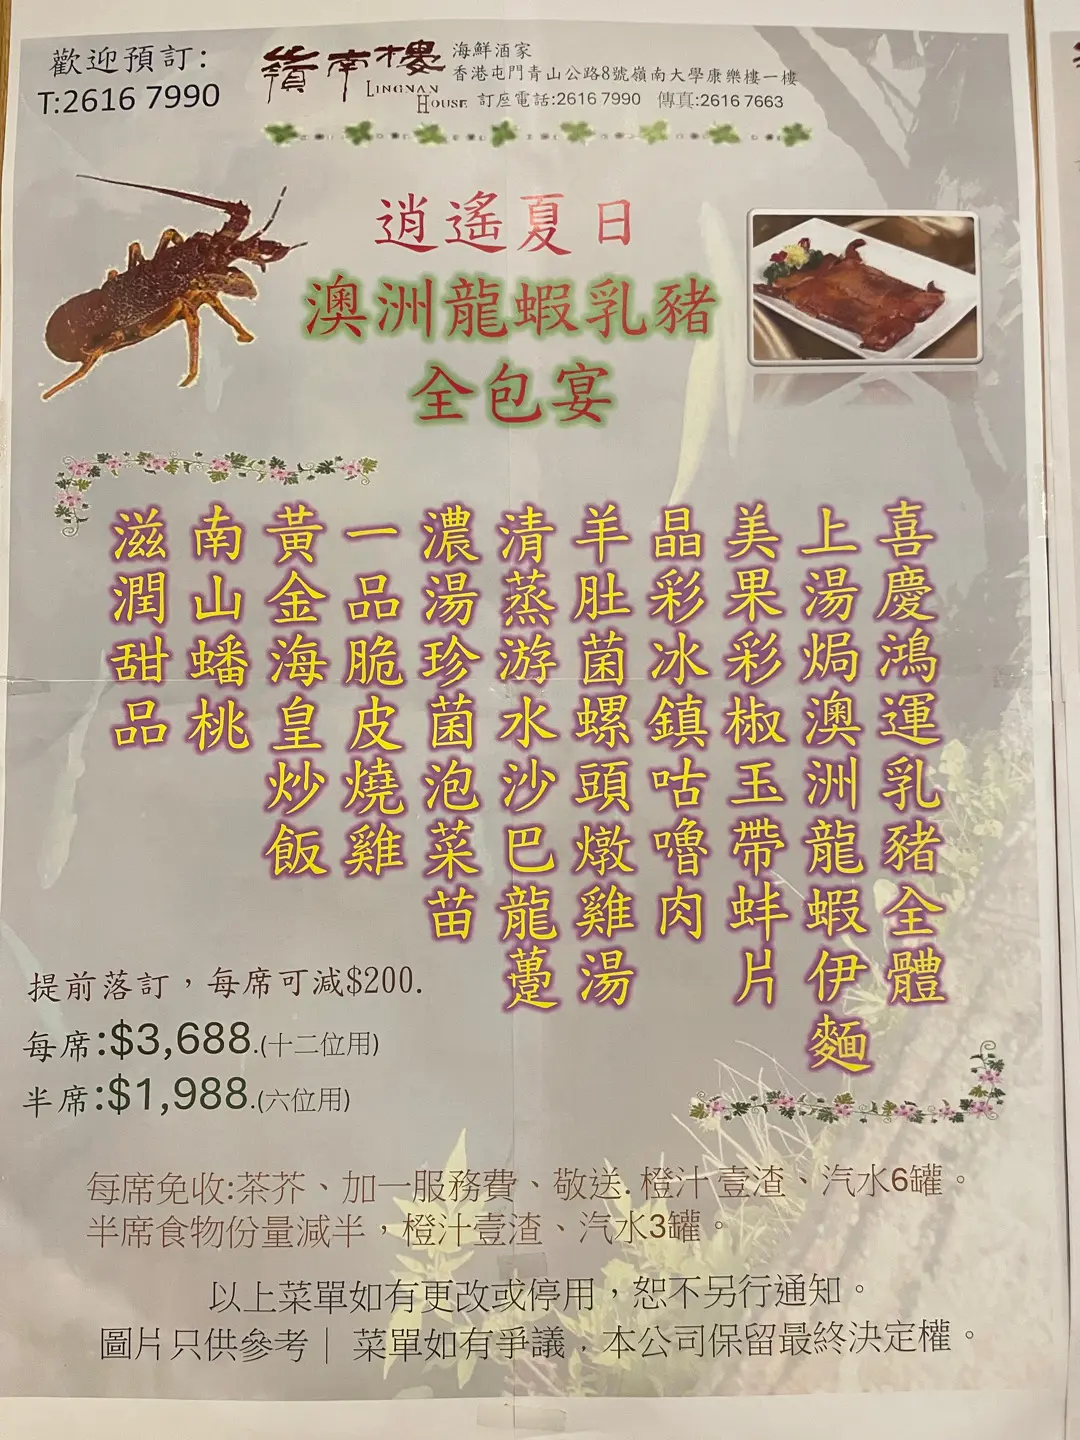 歡迎預訂:
T:2616 7990
嶺南樓
LINGNAN
HOUSE
海鮮酒家
香港屯門青山公路8號嶺南大學康樂樓一樓
訂座電話:2616 7990 傳真:2616 7663
逍遙夏日
澳洲龍蝦乳豬
全包宴
喜慶鴻運乳豬全體
上湯焗澳洲龍蝦伊麵
美果彩椒玉帶蚌片
晶彩冰鎮咕嚕肉
羊肚菌螺頭燉雞湯
清蒸游水沙巴龍躉
濃湯珍菌泡菜苗
一品脆皮燒雞
黃金海皇炒飯
南山蟠桃
滋潤甜品
提前落訂，每席可減$200.
每席:$3,688.(十二位用)
半席:$1,988.(六位用)
每席免收:茶芥、加一服務費、敬送. 橙汁 壹渣、汽水6罐。
半席食物份量減半，橙汁壹渣、汽水3罐。
以上菜單如有更改或停用，恕不另行通知。
圖片只供參考｜ 菜單如有爭議，本公司保留最終決定權。